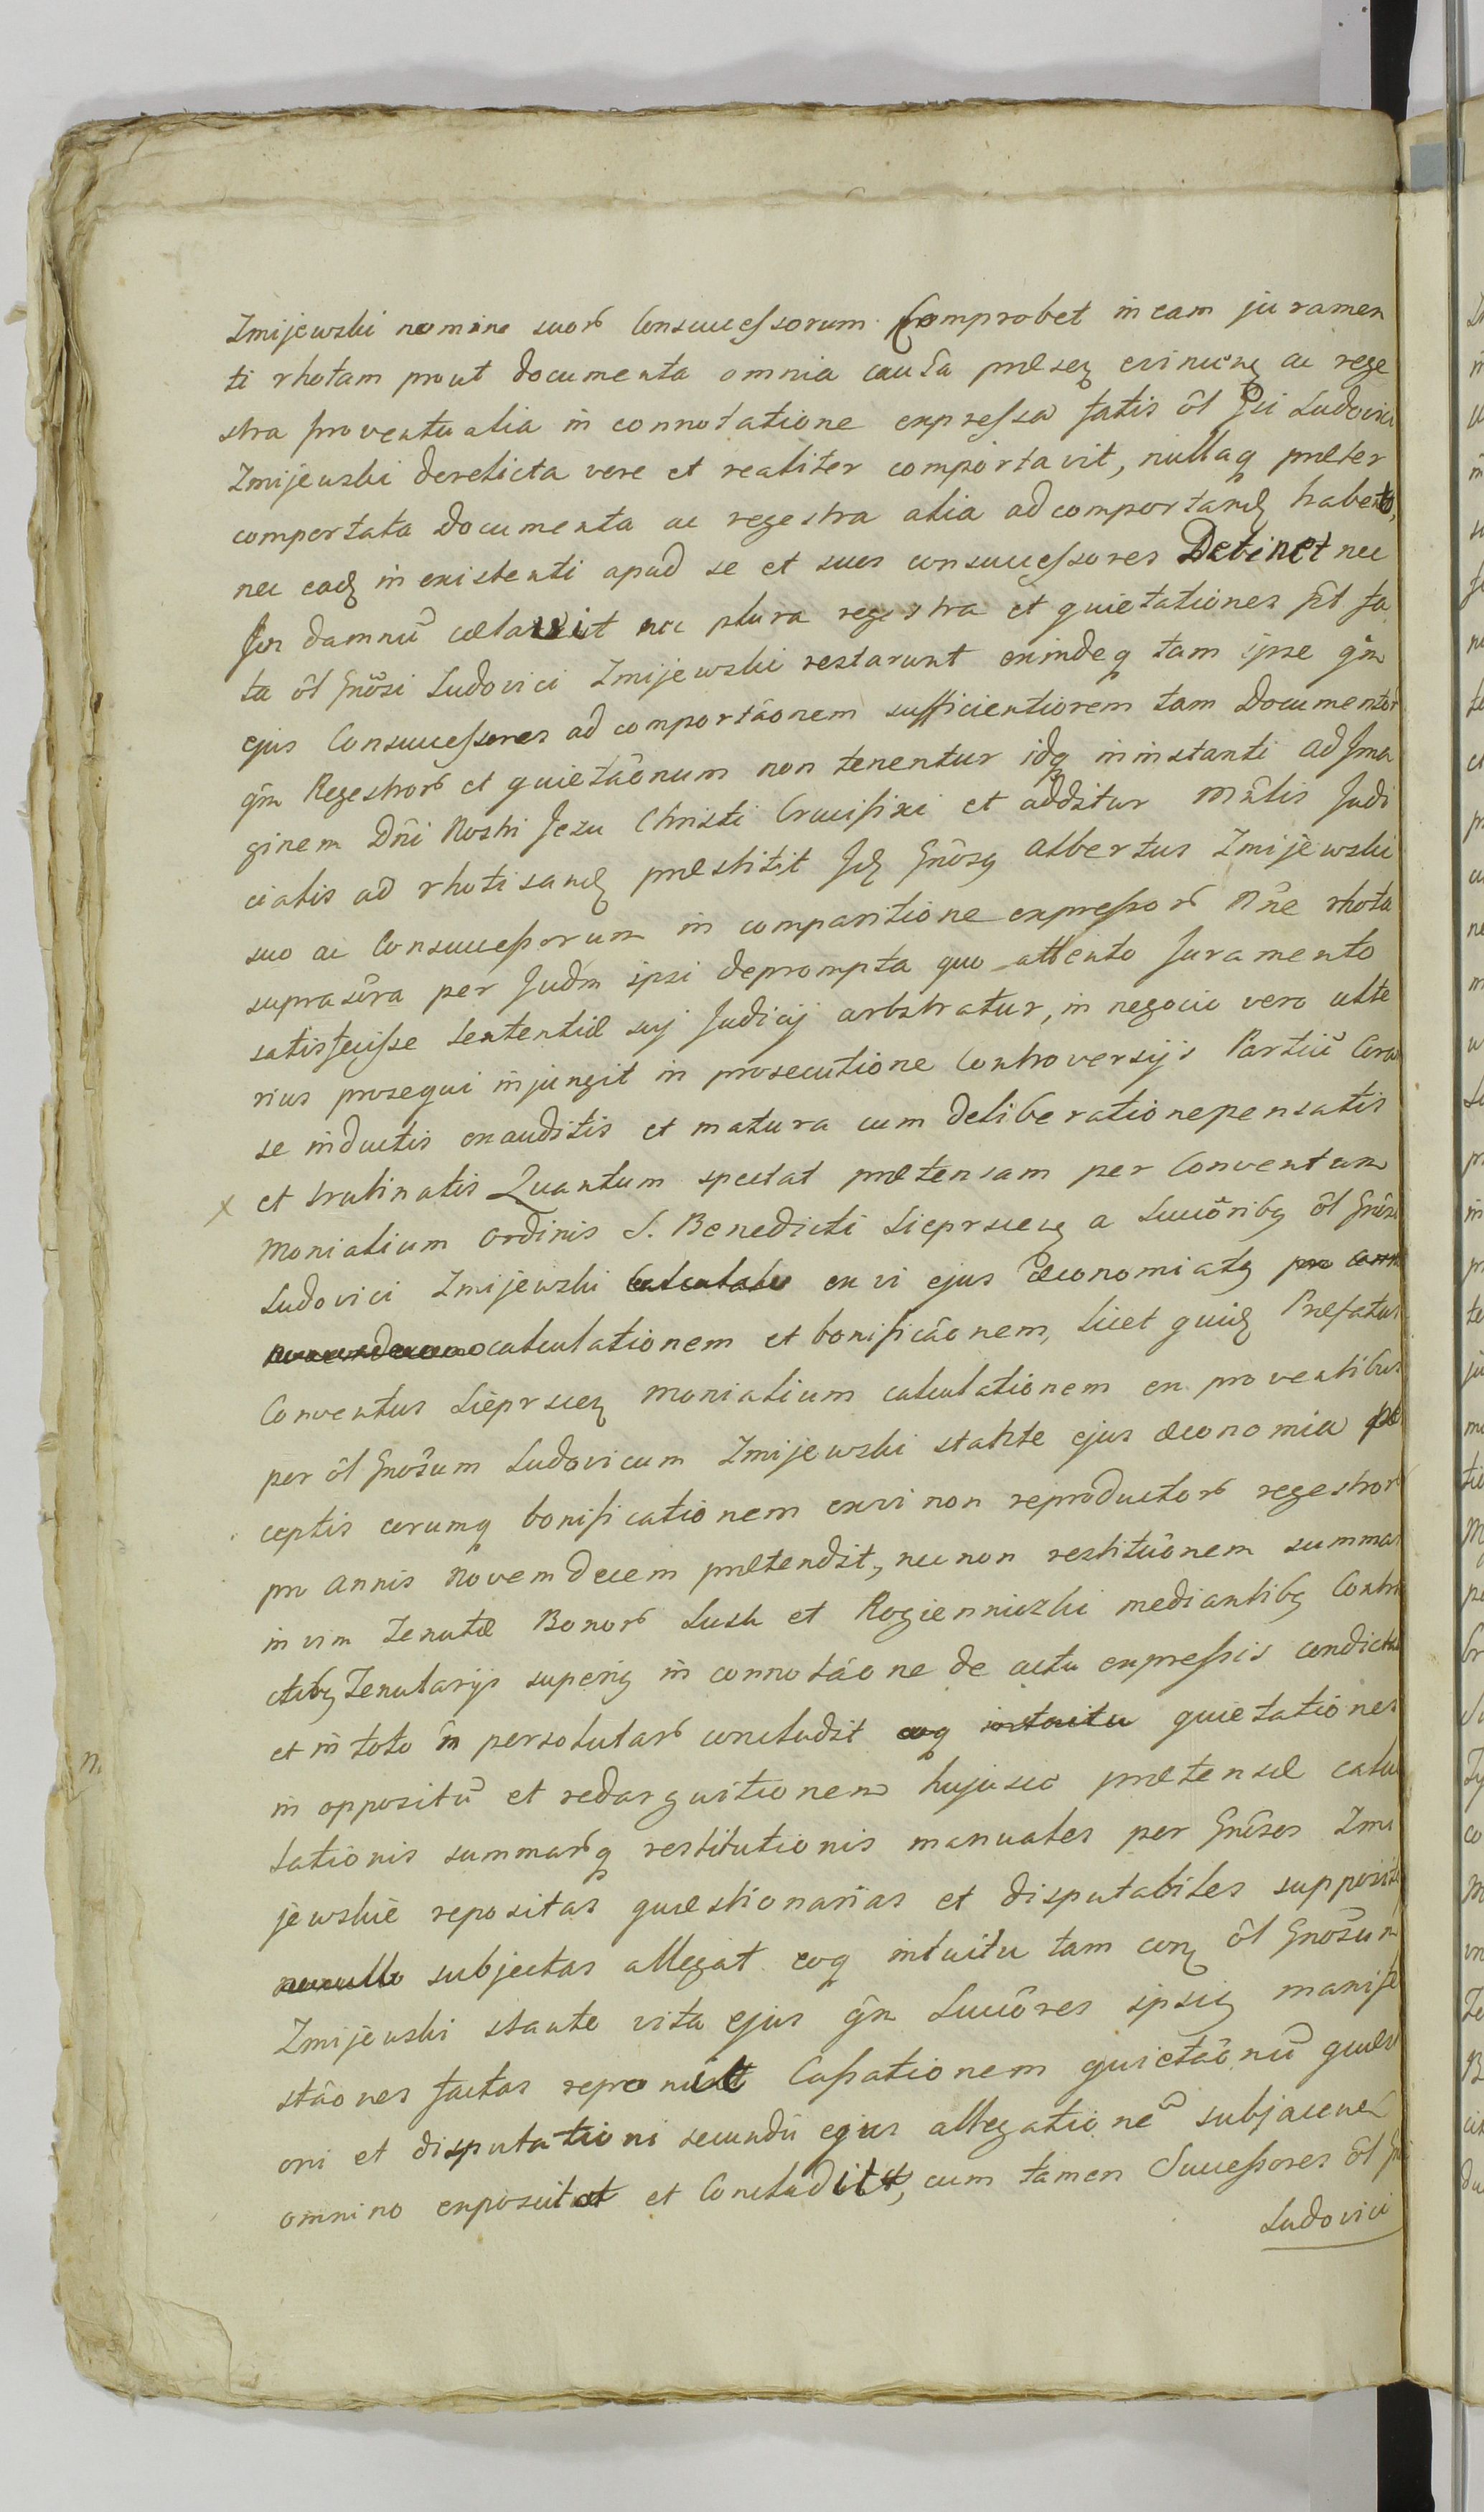 Zmijewski nomine suorũ Consuccessorum Comprobet in eam juramen
ti rhotam prout documenta omnia causa præseꝫ ac rege
stra proventualia in connotatione expressa fatis ôl Ludovici
Zmijewski derelicta vere et realiter comportavit, nullaq præter
comportata Documenta ac regestra alia ad comportandꝫ habet,
nec eadꝫ in existenti apud se et suos consuccessores Detinet nec
in damnũ celavit nec plura regestra et quietationes põt fa
ta ôl Gnôsi Ludovici Zmijewski restarunt exindeq tam ipse qm̃
ejus Consuccessores ad comportãonem sufficientiorem tam Documentorũ
qm̃ Regestrorũ et quietãonum non tenentur idq in instanti ad Ima
ginem Dñi Nostri Jesu Christi Crucifixi et additur Mñlis Judi
cialis ad rhotisandꝫ præstitit Idꝫ Gnôsꝫ Albertus Zmijewski
suo ac Consuccessorum in comparitione expressorũ Nñe rhota
suprasc̃ra per Judm ipsi deprompta quo attento Juramento
satisfecisse Sententiæ suj Judicij arbitratur, in negocio vero ulte
rius prosequi injungit in prosecutione Controversijs Partiũ Cora
se inductis exauditis et matura cum deliberatione pensatis
x et trutinatis Quantum spectat prætensam per Conventum
Monialium Ordinis S. Benedicti Sieprscenꝫ a Succõribꝫ ôl Gnôsi
Ludovici Zmijewski ex vi ejus œconomiatꝫ
calculationem et bonificãonem, licet quidꝫ Præfatus
Conventus Sieprscenꝫ Monialium calculationem ex proventibus
per ôl Gnôsum Ludovicum Zmijewski stante ejus œconomia per
ceptis eorumq bonificationem ex vi non reproductorũ regestrorũ
pro annis Novemdecem prætendit, necnon restitũonem summarũ
in vim Tenutæ Bonorũ Susk et Rogienniczki mediantibꝫ Contra
ctibꝫ Tenutarijs superiꝫ in connotãone de actu expressis condicta
et in toto in persolutarũ concludit quietationes
N. in oppositũ et redarguitionem hujusce prætensæ calcu
lationis summarũq restitutionis manuales per Gnôsos Zmi
jewskie repositas quæstionarias et disputabiles supposit
subjectas allegat eoq intuitu tam conꝫ ôl Gnôsum
Zmijewski stante vita ejus qm̃ Succôres ipsiꝫ manife
stãones factas reponit Cassationem quietãonũ quæsti
oni et disputationi secundũ ejus allegationẽ subjacen
omnino exposcit et Concludit, cum tamen Successores ôl Gn
Ludovici